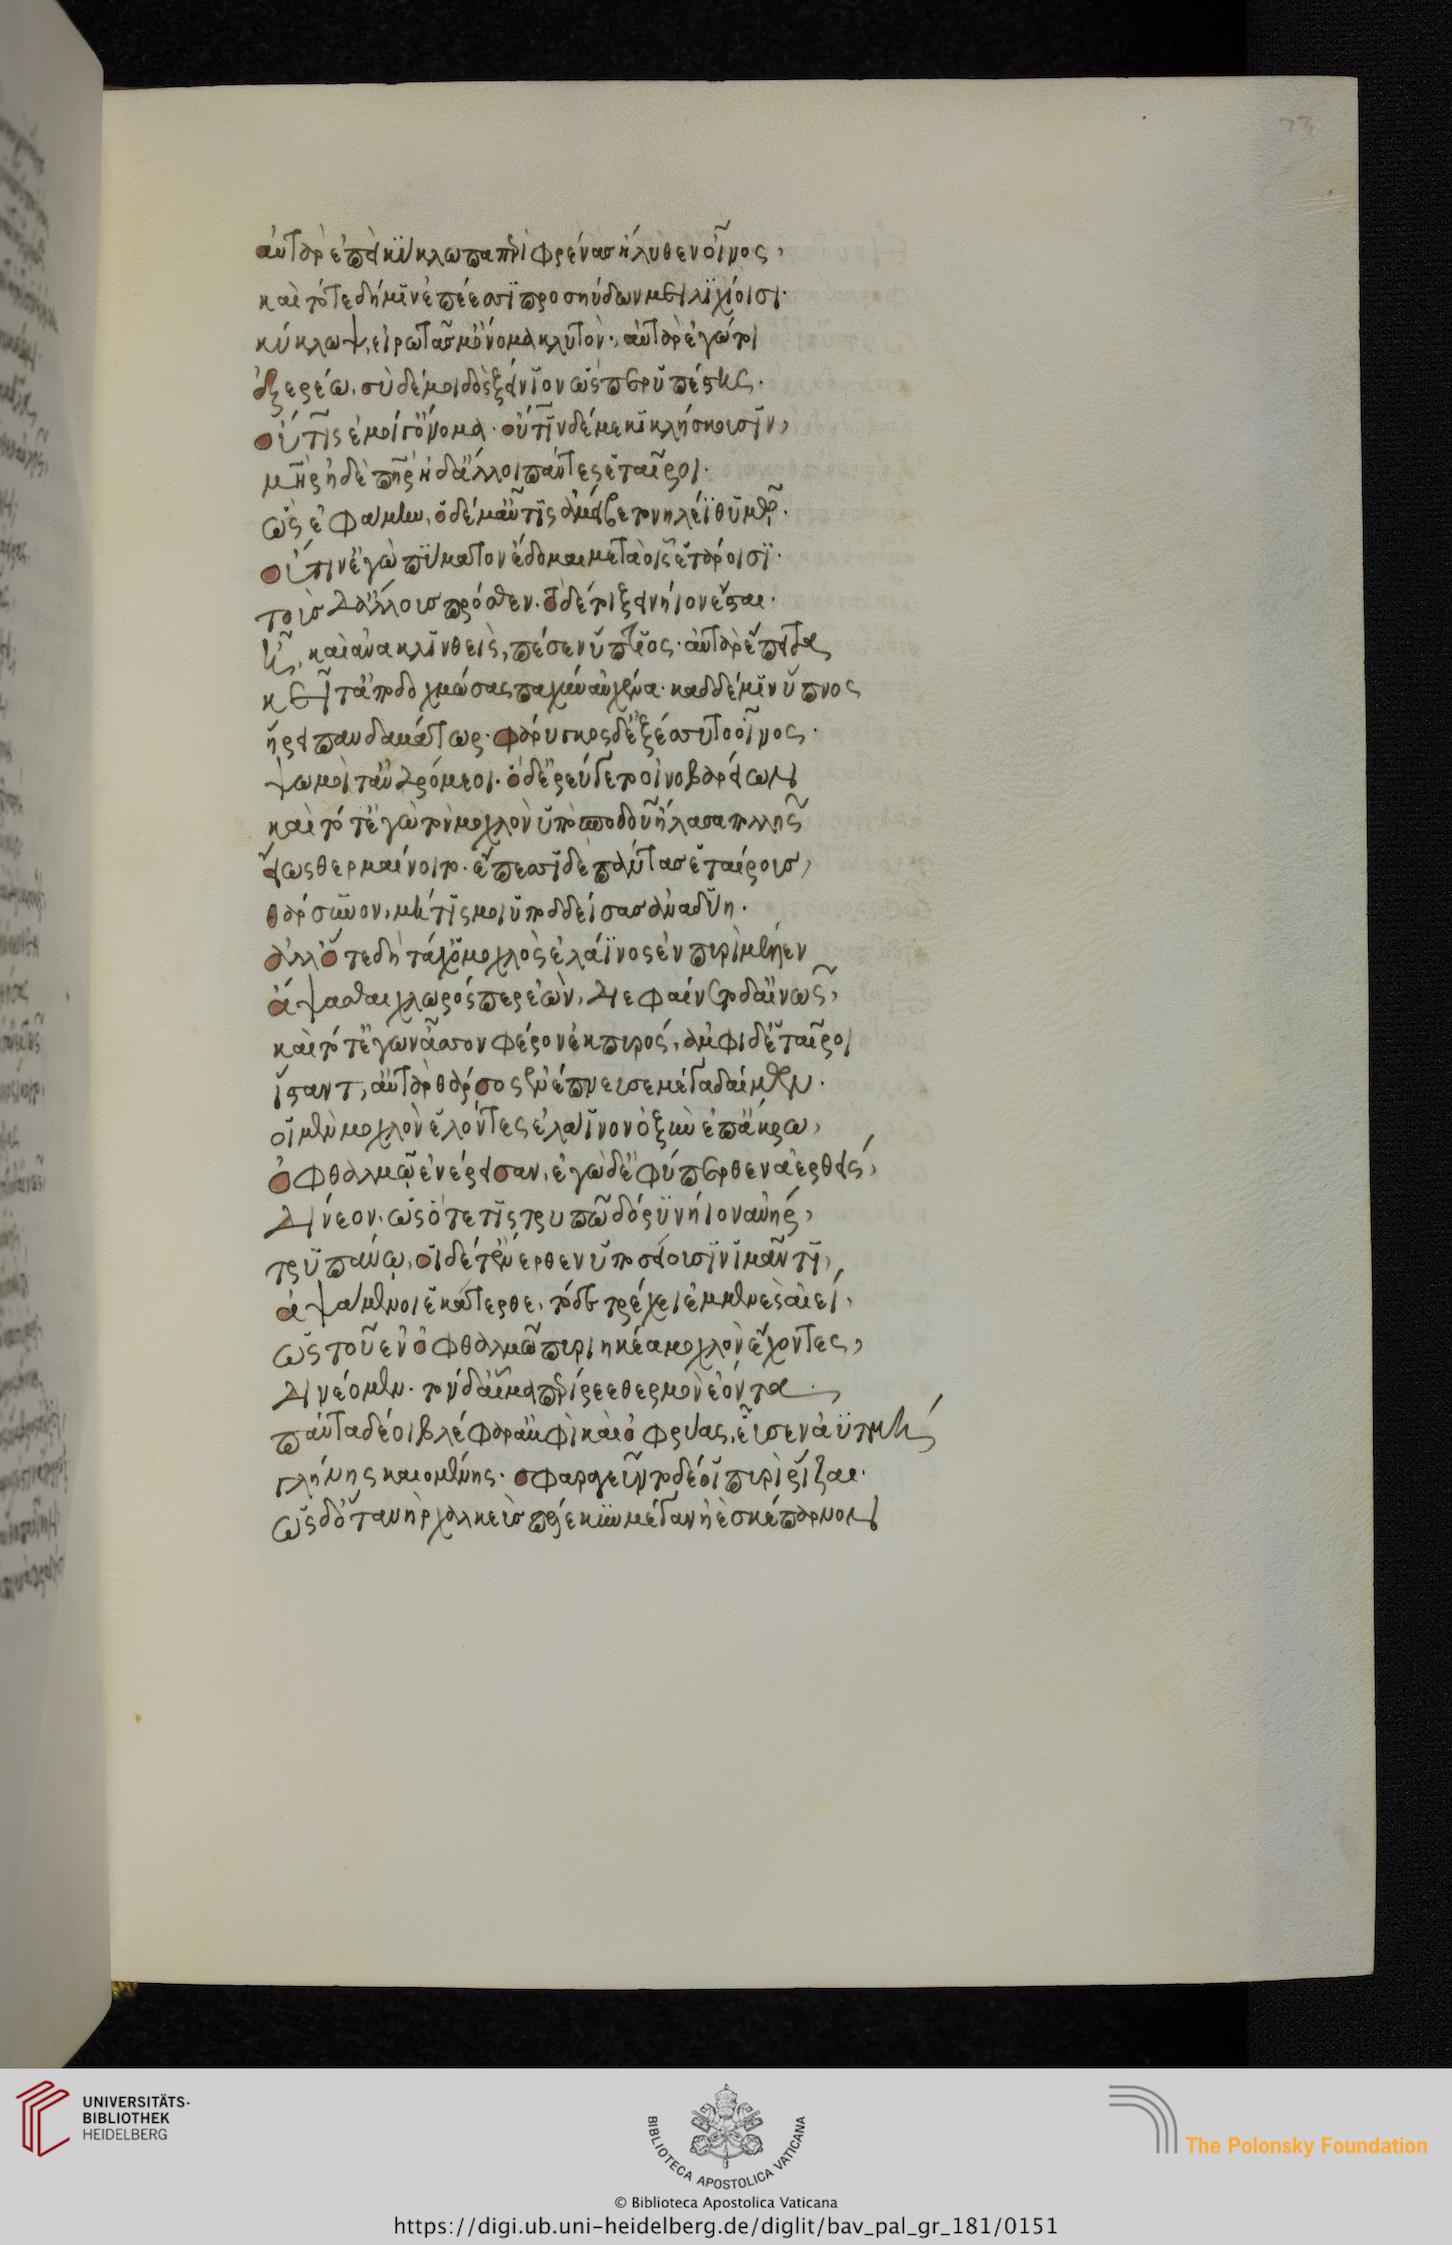 αὐτὰρ ἐπεὶ κύκλωπα περὶ φρένας ἤλυθεν οἶνος,
καὶ τότε δή μιν ἐπέεσσι προσηύδων μειλιχίοισι·
κύκλωψ, εἰρωτᾷς μ' ὄνομα κλυτὸν· αὐτὰρ ἐγώ τοι
ἐξερέω, σὺ δέ μοι δὸς ξείνιον ὥς περ ὑπέστης.
οὖτις ἐμοίγ' ὄνομα· οὖτιν δέ με κικλήσκουσιν,
μήτηρ ἠδὲ πατὴρ ἠδ' ἄλλοι πάντες ἑταῖροι.
ὣς ἐφάμην, ὁ δέ μ' αὖτις ἀμείβετο νηλέϊ θυμῷ.
οὖτιν ἐγὼ πύματον ἔδομαι μετὰ οἷς ἑτάροισι·
τοὺς δ' ἄλλους πρόσθεν. τὸ δέ τοι ξεινήιον ἔσται.
ἦ, καὶ ἀνακλινθεὶς, πέσεν ὕπτιος· αὐτὰρ ἔπειτα
κεῖτ' ἀποδοχμώσας παχὺν αὐχένα· καδδέ μιν ὕπνος
ᾕρει πανδαμάτωρ· φάρυγκος δ' ἐξέσσυτο οἶνος·
ψωμοί τ' ἀνδρόμεοι· ὁ δ' ἐρεύγετο οἰνοβαρείων
καὶ τότ' ἐγὼ τὸν μοχλὸν ὑπὸ σποδοῦ ἤλασα πολλῆς
εἵως θερμαίνοιτο· ἔπεσσι δὲ πάντας ἑταίρους,
θάρσυνον, μή τίς μοι ὑποδδείσας ἀναδύη.
ἀλλ' ὅτε δὴ τάχ' ὁ μοχλὸς ἐλάϊνος ἐν πυρὶ μέλλεν
ἅψασθαι χλωρός περ ἐὼν, διεφαίνετο δ' αἰνῶς,
καὶ τότ' ἐγὼν ἆσσον φέρον ἐκ πυρός, ἀμφὶ δ' ἑταῖροι
ἵσαντ', αὐτὰρ θάρσος ἐνέπνευσε μέγα δαίμων.
οἱ μὲν μοχλὸν ἑλόντες ἐλάϊνον ὀξὺν ἐπ' ἄκρω,
ὀφθαλμῷ ἐνέρεισαν, ἐγὼ δ' ἐφύπερθεν ἀερθείς,
δίνεον. ὡς ὅτε τίς τρυπῷ δόρυ νήιον ἀνὴρ,
τρυπάνῳ, οἱ δέ τ' ἔνερθεν ὑποσσείουσιν ἱμάντι,
ἁψάμενοι ἑκάτερθε, τὸ δὲ τρέχει ἐμμενὲς αἰεί,
ὣς τοῦ ἐν ὀφθαλμῷ πυριηκέα μοχλὸν ἔχοντες,
δινέομεν. τὸν δ' αἷμα περίρρεε θερμὸν ἐόντα.
πάντα δέ οἱ βλέφαρ' ἀμφὶ καὶ ὀφρύας, εὗσεν ἀϋτμή
γλήνης καιομένης. σφαραγεῦντο δέ οἱ πυρὶ ῥίζαι.
ὡς δ' ὅτ' ἀνὴρ χαλκεὺς πέλεκυν μέγαν ἠὲ σκέπαρνον
UNIVERSITÄTS-
BIBLIOTHEK
HEIDELBERG
BIBLIOTECA APOSTOLICA VATICANA
© Biblioteca Apostolica Vaticana
The Polonsky Foundation
https://digi.ub.uni-heidelberg.de/diglit/bav_pal_gr_181/0151